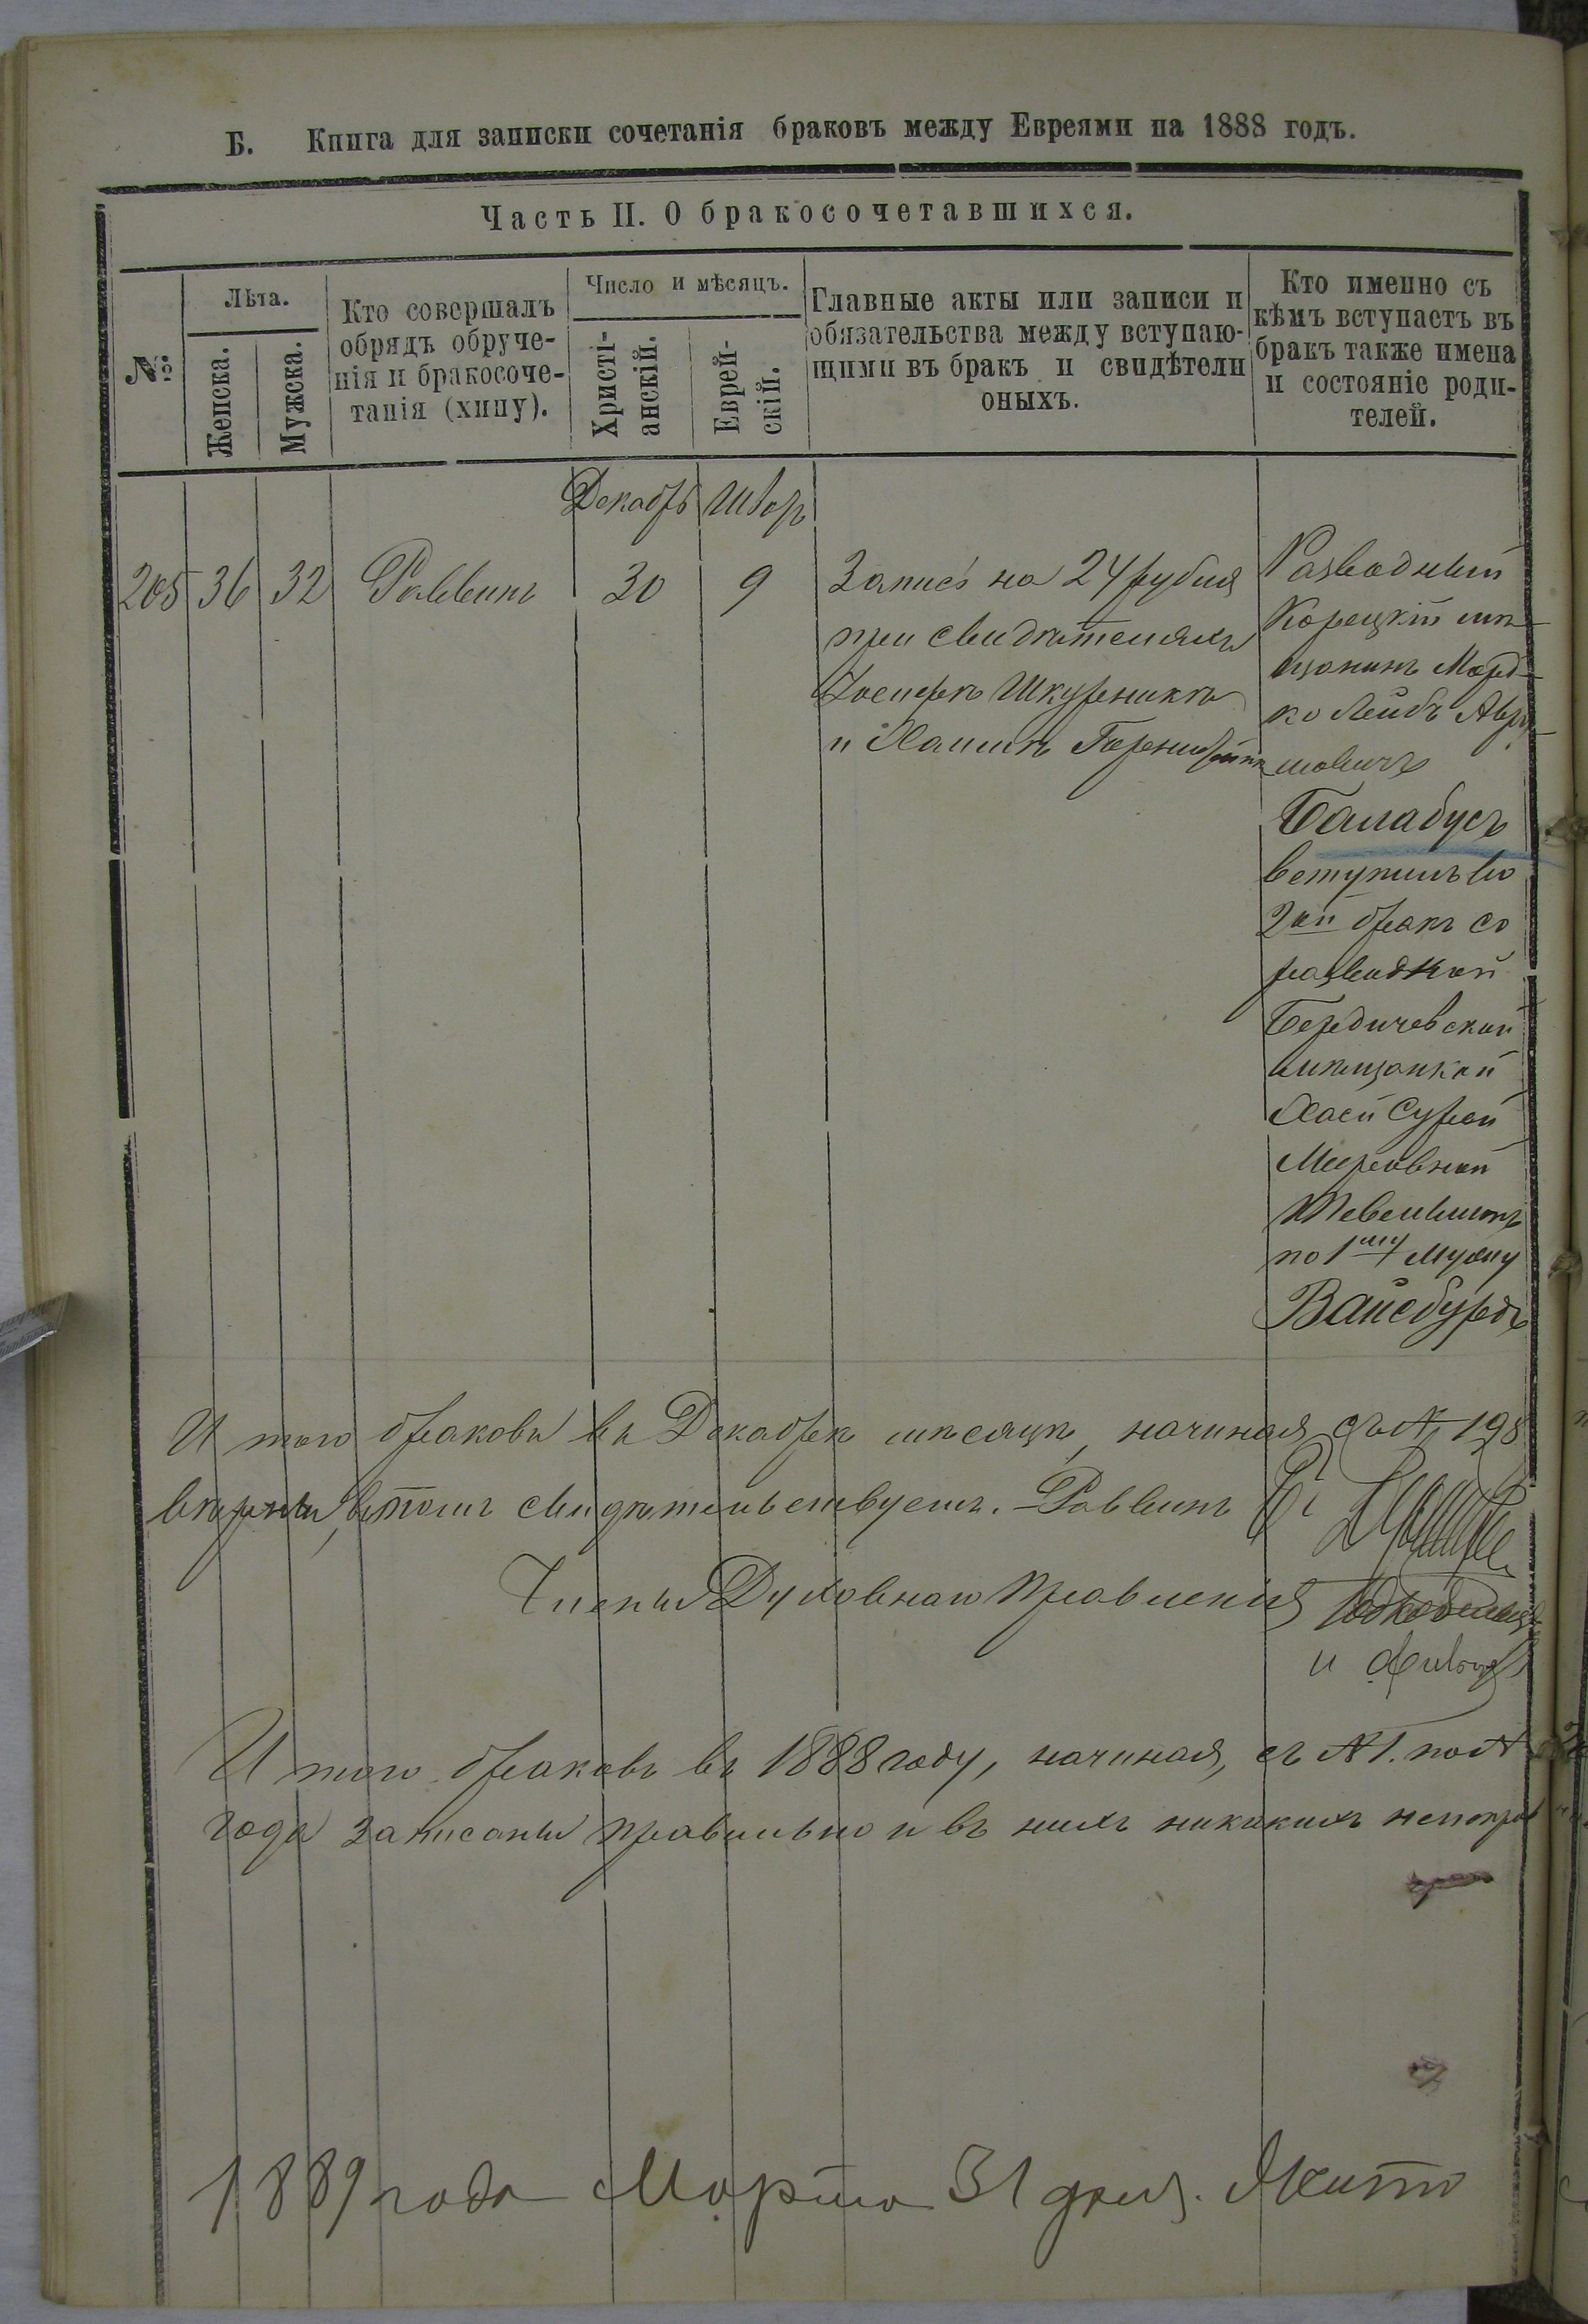 Б. Книга для записки сочетанія браковъ между Евреями на 1888 годъ.
Часть II. О бракосочетавшихся.
№
Лѣта.
Женска.
Мужска.
Кто совершалъ
обрядъ обруче-
нія и бракосоче-
танія (хипу).
Число и мѣсяцъ.
Христі-
анскій.
Еврей-
скій.
Главные акты или записи и
обязательства между вступаю-
щими въ бракъ и свидѣтели
оныхъ.
Кто именно съ
кѣмъ вступаетъ въ
бракъ также имена
и состояніе роди-
телей.
Декабрь Шворъ
205 36 32 Раввинъ 30 9
Запись на 24 рубля
при свидѣтеляхъ
Іосифѣ Шкурникѣ
и Хаимѣ
Разводный
Корецкій мѣ-
щанинъ Морд-
ко Лейбъ Авру-
мовичъ
Балабусъ
вступилъ во
2ой бракъ со
разводкой
Бердичевской
мѣщанкой
Хаей Сурой
Мееровной
Тевелевичъ
по 1му мужу
Вайсбурдъ
И того браковъ въ Декабрѣ мѣсяцѣ, начиная съ № 198
вѣрны, въ томъ свидѣтельствуемъ. Раввинъ
Члены Духовнаго Правленія
и
И того браковъ въ 1888 году, начиная, съ № 1. по №
года записаны правильно и въ нихъ никакихъ непоправ
1889 года Марта 31 дня. Жито